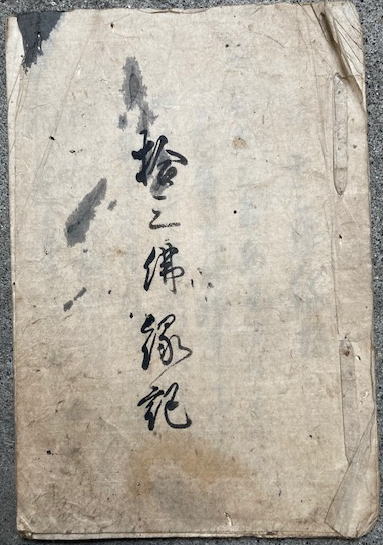 拾三佛縁記